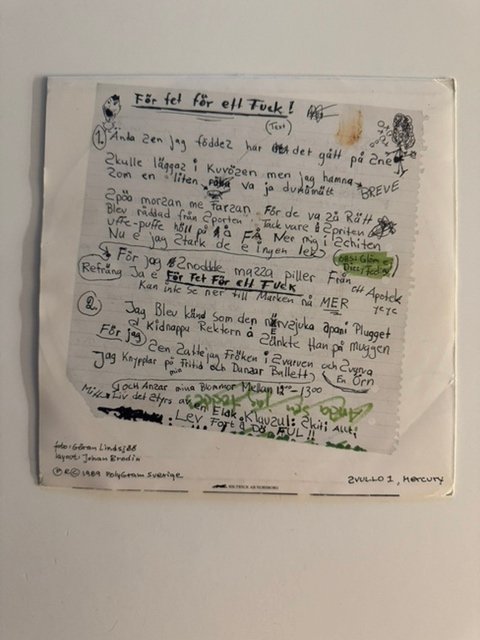 För fet för ett Fuck!
(Text)
1. Ända sen jag föddes har det gått på sne
Skulle läggas i Kuvösen men jag hamna BREVE
Som en liten va ja dunomätt
Spöa morsan me Farzan För de va så Rätt
Blev räddad från Sporten Tack vare Spriten
Uffe-puffe höll på å FÅ Ner mig i Skiten
Nu e jag Stark de e ingen lek
OBS: Glöm ej
För jag Snodde massa piller Från ett Apotek
Refräng Ja e För Fet För ett Fuck yeye
Kan inte se ner till Marken nå MER
2. Jag Blev känd som den nervsjuka apan i Plugget
Kidnappa Rektorn å Sänkte Han på muggen
För jag Sen Satte jag Fröken i Svarven och Svarva En Örn
Jag Knypplar på min Fritid och Dansar Ballett
och Ansar mina Blommor Mellan 12⁰⁰-13⁰⁰
Mitt Liv det Styrs av en Elak Klauzul: Skit i Allt
Ända sen jag föddes
Lev Fort å Dö FUL!!
foto: Göran Lindsjöö
layout: Johan Brodin
Ⓟ & © 1989 PolyGram Sverige
SVULLO 1, Mercury